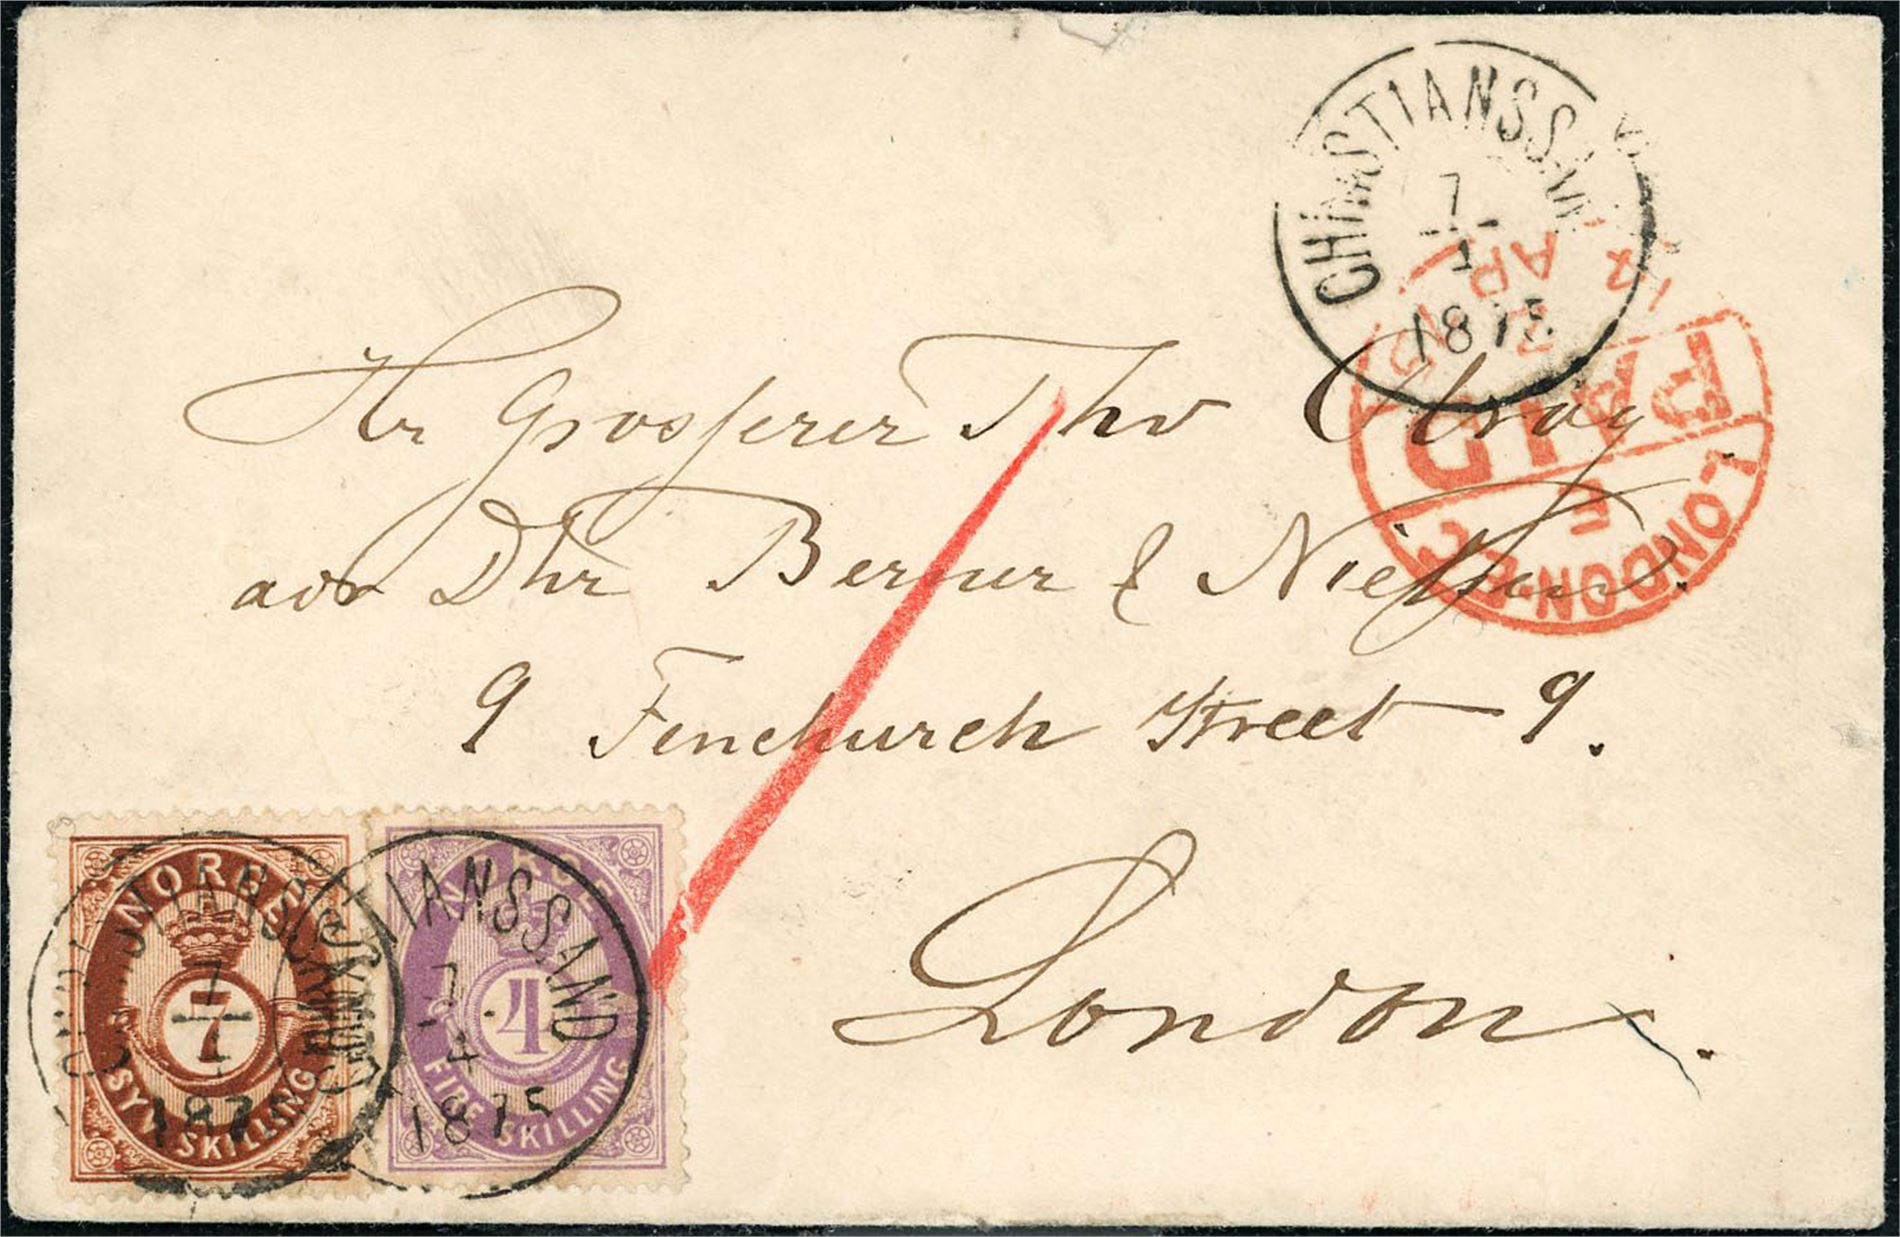 CHRISTIANSSAND
7
4
1875
12
AP
PAID
E
LONDON·EC
Hr Grosserer Thv
adr Dhr Berner & Nielsen.
9 Fenchurch Street - 9.
London.
NORGE
7
SYV SKILLING
NORGE
4
FIRE SKILLING
CHRISTIANSSAND
7
4
1875
CHRISTIANSSAND
7
4
1875